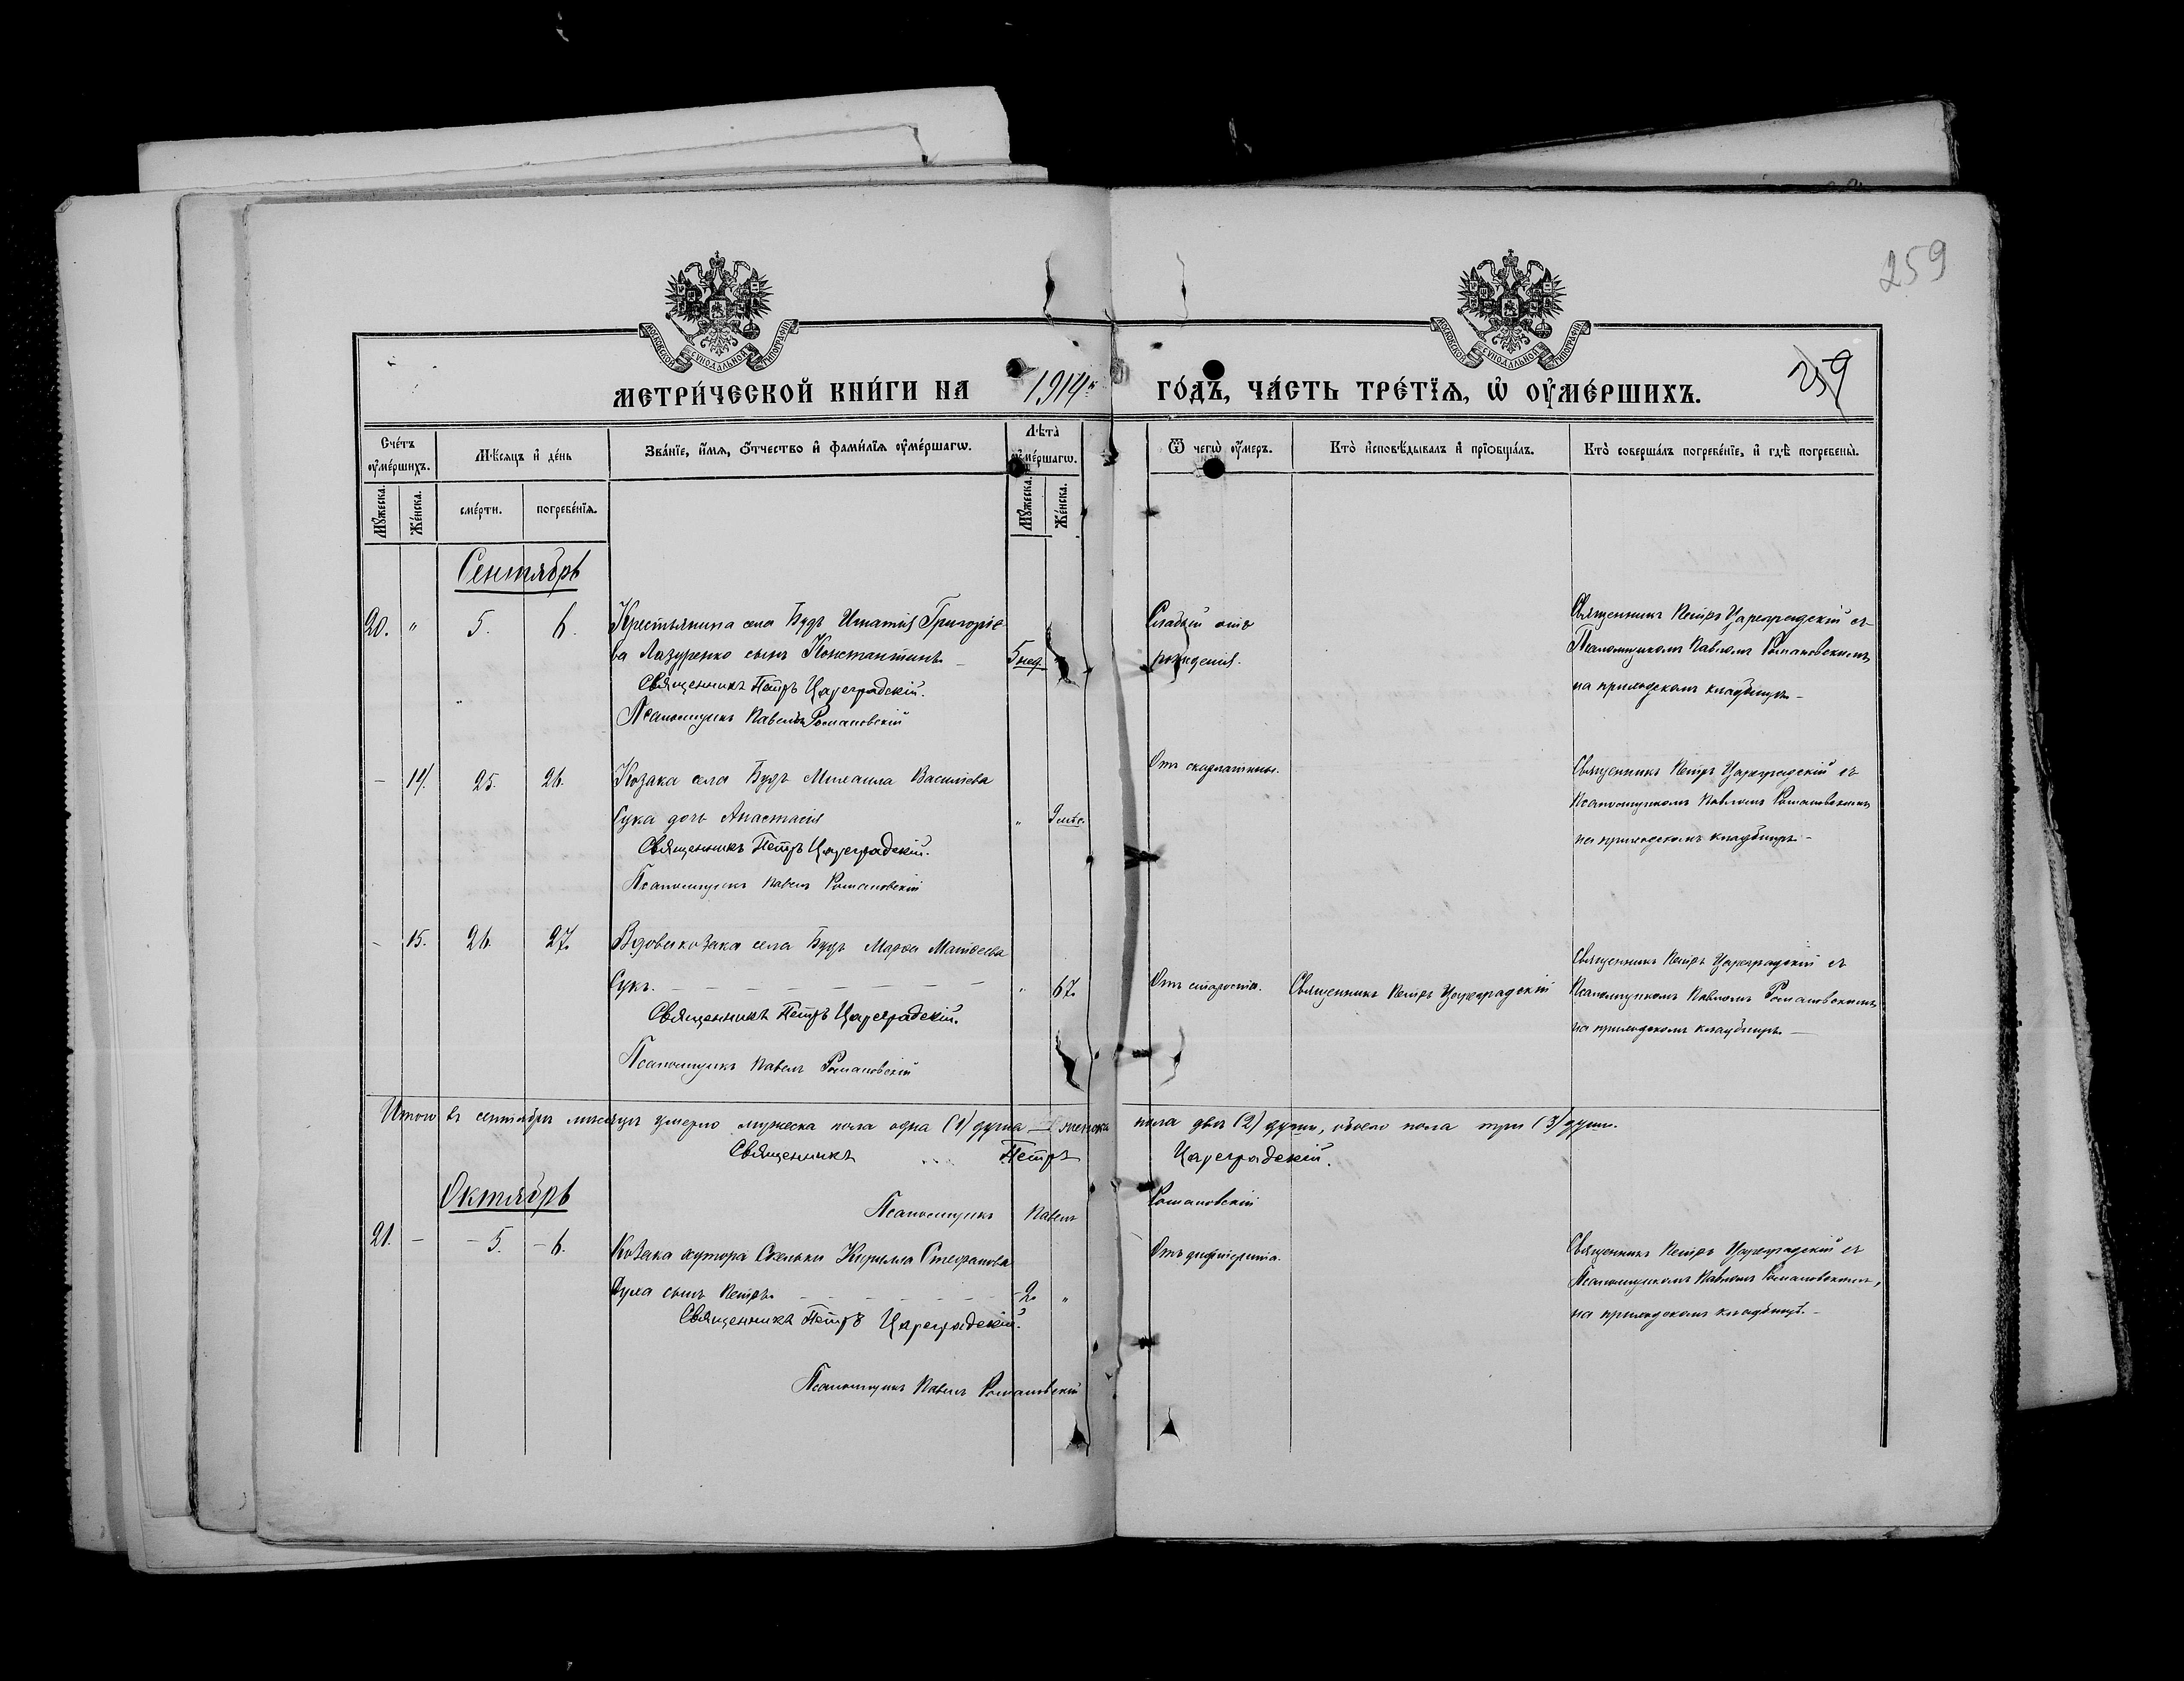 259
МОСКОВСКОЙ СѴНОДАЛЬНОЙ ТИПОГРАФІИ
МОСКОВСКОЙ СѴНОДАЛЬНОЙ ТИПОГРАФІИ
МЕТРИ́ЧЕСКОЙ КНИ́ГИ НА 1914й ГО́ДЪ, ЧА́СТЬ ТРЕ́ТЇѦ, Ѡ҆ ОУ҆МЕ́РШИХЪ.
Сче́тъ оу҆ме́ршихъ.
Мѣ́сѧцъ и҆ де́нь
Зва́нїе, и҆́мѧ, ѻ҆́тчество и҆ фами́лїѧ оу҆ме́ршагѡ.
Лѣ́та оу҆ме́ршагѡ.
Ѿ чегѡ̀ оу҆́меръ.
Кто̀ и҆сповѣ́дывалъ и҆ прїѡбща́лъ.
Кто̀ соверша́лъ погребе́нїе, и҆ гдѣ̀ погребены̀.
Мꙋ́жеска. Же́нска. сме́рти. погребе́нїѧ. Мꙋ́жеска. Же́нска.
Сентябрь
20. " 5. 6. Крестьянина села Будъ Игнатія Григоріе-
ва Лазуренко сынъ Константинъ 5 нед.
Священникъ Петръ Цареградскій.
Псаломщикъ Павелъ Романовскій
Слабый отъ
рожденія.
Священникъ Петръ Цареградскій съ
Псаломщикомъ Павломъ Романовскимъ
на приходскомъ кладбищѣ
- 14. 25. 26. Козака села Будъ Михаила Васильева
Сука дочь Анастасія " 9 мѣс.
Священникъ Петръ Цареградскій.
Псаломщикъ Павелъ Романовскій
Отъ скарлатины.
Священникъ Петръ Цареградскій съ
Псаломщикомъ Павломъ Романовскимъ
на приходскомъ кладбищѣ
- 15. 26. 27. Вдова козака села Будъ Марѳа Матѳеева
Сукъ. " 67.
Священникъ Петръ Цареградскій.
Псаломщикъ Павелъ Романовскій
Отъ старости.
Священникъ Петръ Цареградскій
Священникъ Петръ Цареградскій съ
Псаломщикомъ Павломъ Романовскимъ
на приходскомъ кладбищѣ
Итого въ сентябрѣ мѣсяцѣ умерло мужеска пола одна (1) душа женска пола двѣ (2) души, обоего пола три (3) души.
Священникъ Петръ Цареградскій.
Псаломщикъ Павелъ Романовскій
Октябрь
21. - 5. 6. Козака хутора Кирилла Стефанова
сынъ Петръ 2. "
Священникъ Петръ Цареградскій.
Псаломщикъ Павелъ Романовскій
Отъ дифтерита.
Священникъ Петръ Цареградскій съ
Псаломщикомъ Павломъ Романовскимъ,
на приходскомъ кладбищѣ.